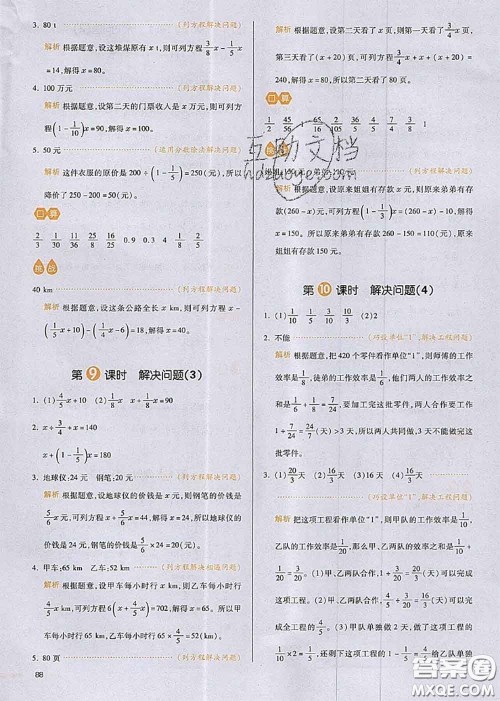 3. 80 t (列方程解决问题)
解析 根据题意，设这堆煤原有 x t，则可列方程 3/8 x - 1/5
x=14，解得 x=80。
4. 100万元 (列方程解决问题)
解析 根据题意，设第二天的门票收入是 x 万元，则可列方
程(1-1/10)x=90，解得 x=100。
5. 50元 (运用分数除法解决问题)
解析 这件衣服的原价是 200÷(1-1/5)=250(元)，所以
降价了 250-200=50(元)。
口算
2/3 1/30 15/16 8/25 0.9 0.3 4 1/8 5/6
挑战
40 km (列方程解决问题)
解析 根据题意，设这条公路全长 x km，则可列方程 x-
(1/5 x+10)-(1/4 x-6)=18，解得 x=40。
第9课时 解决问题(3)
1. (1) 4/5 x+10 (2) 1/8 x x+1/8 x=90
2. x÷3/4+x=140
x+(1-1/5)x=90
3. 地球仪:24元 钢笔:20元 (列方程解决问题)
解析 根据题意，设地球仪的价钱是 x 元，则钢笔的价钱是
5/6 x 元，可列方程 x+5/6 x=44，解得 x=24。所以地球仪的
价钱是 24 元，钢笔的价钱是 5/6×24=20(元)。
4. 甲车:65 km 乙车:52 km (列方程解决相遇问题)
解析 根据题意，设甲车每小时行 x km，则乙车每小时行
4/5 x km，可列方程 6×(x+4/5 x)=702，解得 x=65。所以
甲车每小时行 65 km，乙车每小时行 4/5×65=52(km)。
5. 80页 (列方程解决问题)
88
解析 根据题意，设第二天看了 x 页，则第一天看了 3/4 x 页，
第三天看了(x+20)页，可列方程 3/4 x+x+(x+20)=
240，解得 x=80。所以第二天看了 80 页。
口算
1/2 45/56 4/15 2/105 3/16 5/36 2/3 16/45 1
挑战
(列方程解决问题)
解析 根据题意，设原来姐姐有存款 x 元，则原来弟弟有存
款(260-x)元，可列方程(1-1/3)x=(260-x)-10，解得
x=150。所以原来弟弟有存款 260-150=110(元)，原来
姐姐有存款 150 元。
第10课时 解决问题(4)
1. (1) 1/10 1/5 3/10 (2) 2
2. 不能 (巧设单位“1”，解决工程问题)
解析 根据题意，把 420 个零件看作单位“1”，则师傅的工作
效率是 1/6，徒弟的工作效率是 1/8，他们两人的工作效率之
和是 1/6+1/8=7/24，两人合作完成加工这批零件，需要
1÷7/24=24/7(天)，所以两人共同做 3 天不能完成加工这批
零件。
3. (1) 20/3 天 (2) 3天 (3) 4天 (4) 16/3 天
(巧设单位“1”，解决工程问题)
解析 把这项工程看作单位“1”，则甲队的工作效率是 1/10，
乙队的工作效率是 1/20，那么，甲、乙两队合作，每天可以完
成这项工程的 1/10+1/20=3/20。(1)甲、乙两队合作，完成
这项工程需 1÷3/20=20/3(天)。(2)甲、乙两队合作 3 天可
以完成这项工程。(3)甲队单独做 2 天，做了这项工程的
1/10×2=1/5，还剩下这项工程的 1-1/5=4/5，甲、乙两队合
互助文档
答案圈
MXQE.COM